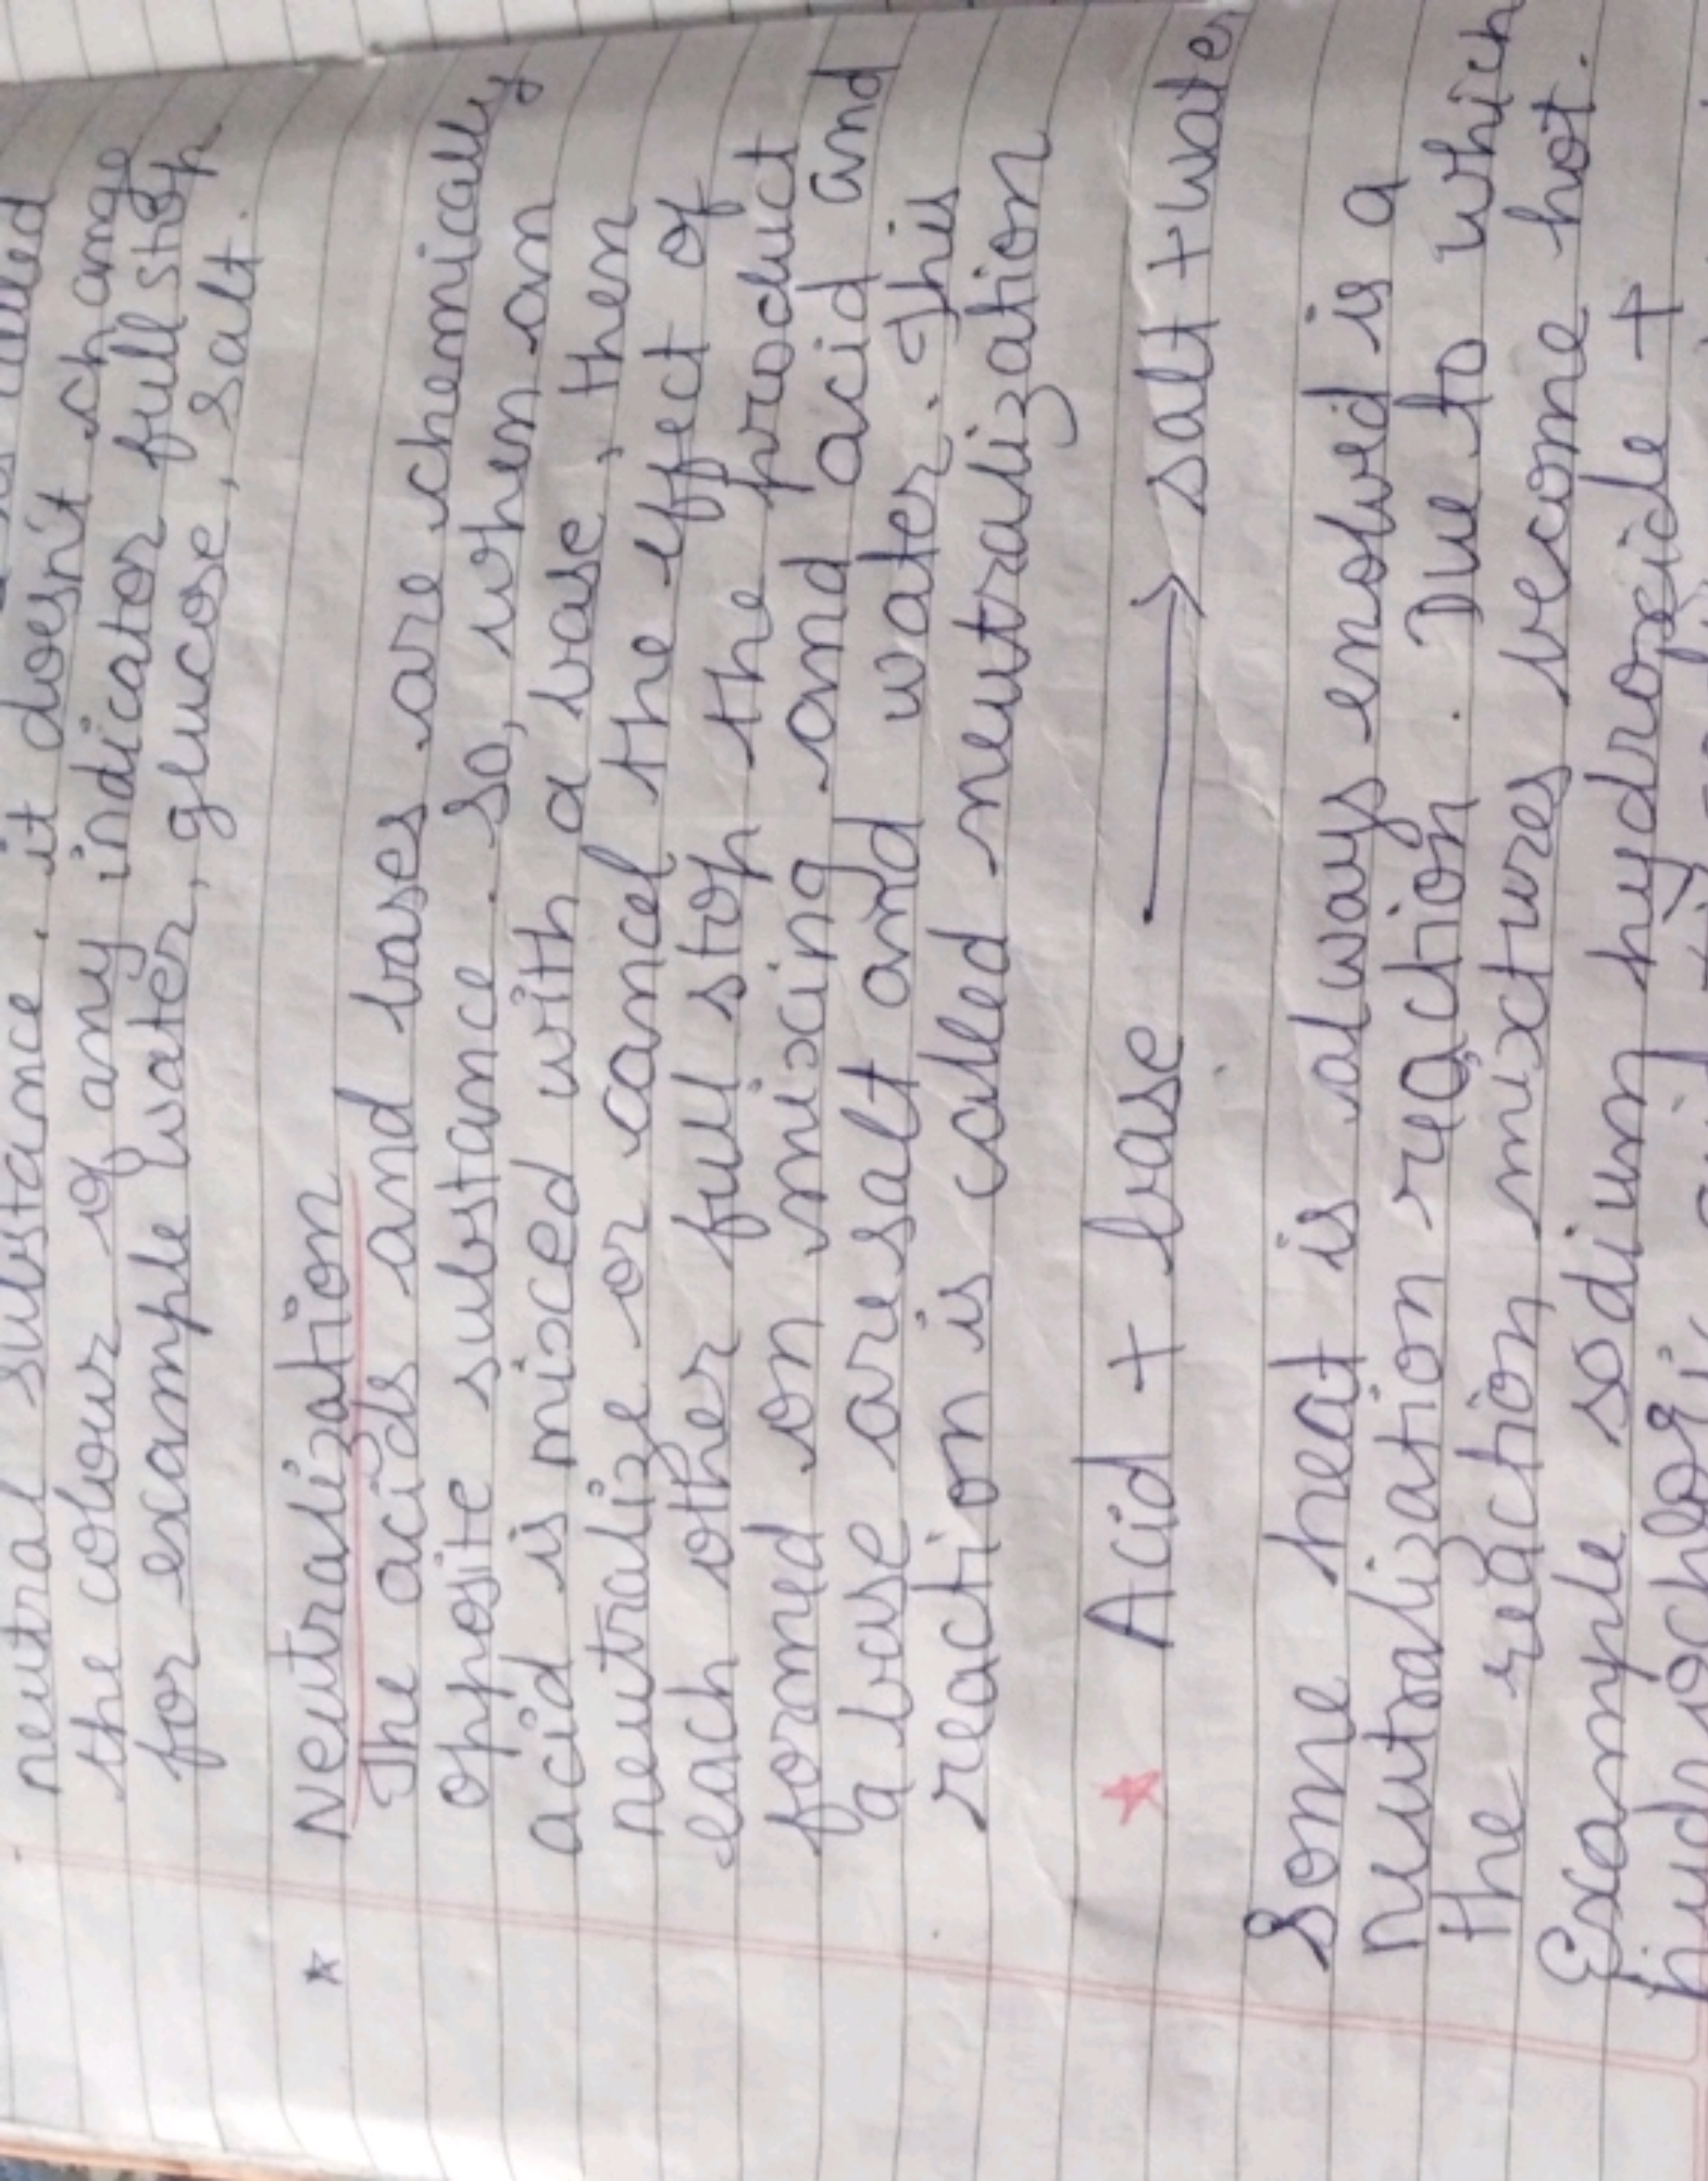 neutral substance. it doesn't change
the colour of any indicator full stop
for example water, glucose, salt.
* Neutralization
The acids and bases are chemically
opposite substance. So, when an
acid is mixed with a base, then
neutralize or cancel the effect of
each other full stop the product
formed on mixing and acid and
a base are salt and water. This
reaction is called neutralization
Acid + base → salt + water
Some heat is always enolved is a
neutralization reaction. Due to which
the reaction mixtures become hot.
Example sodium hydroxide +
hydrochloric